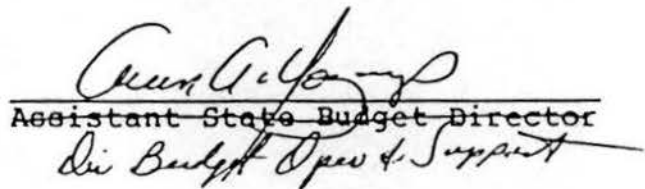 A. Young
Assistant State Budget Director
Dir Budget Oper & Support